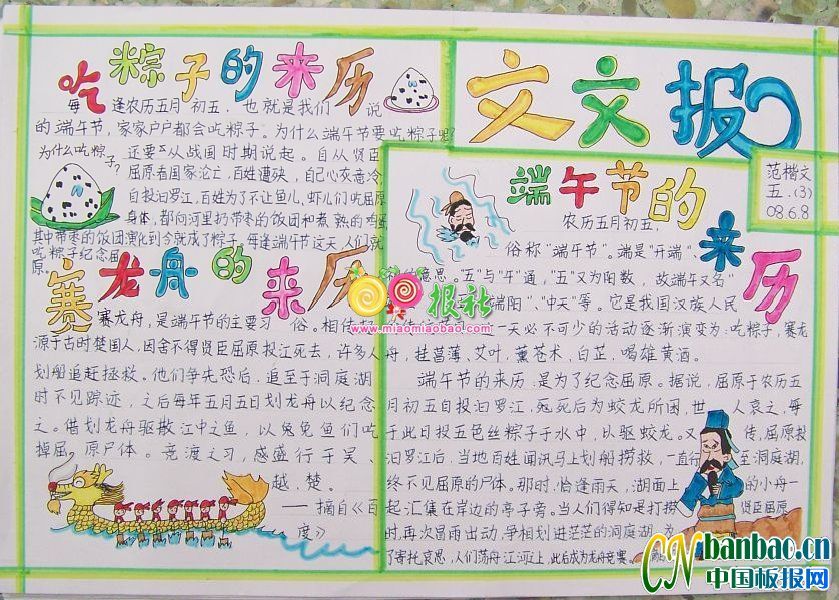 吃粽子的来历
每逢农历五月初五，也就是我们说
的端午节，家家户户都会吃粽子。为什么端午节要吃粽子呢？
为什么吃粽子？
还要从战国时期说起。自从贤臣
屈原看国家沦亡，百姓遭殃，自己心灰意冷，
自投汨罗江，百姓为了不让鱼儿、虾儿们吃屈原
身体，都向河里扔带枣的饭团和煮熟的鸡蛋
其中带枣的饭团演化到今就成了粽子，每逢端午节这天，人们就
吃粽子纪念屈
原。
赛龙舟的来历
赛龙舟，是端午节的主要习俗。相传起
源于古时楚国人，因舍不得贤臣屈原投江死去，许多人
划船追赶拯救。他们争先恐后，追至于洞庭湖
时不见踪迹，之后每年五月五日划龙舟以纪念
之。借划龙舟驱散江中之鱼，以免鱼们吃
掉屈原尸体。竞渡之习，感盛行于吴、
越、楚。
——摘自《百
度》
文文报
范楷文
五.(3)
08.6.8
端午节的来历
农历五月初五，
俗称"端午节"。端是"开端"、
的意思。"五"与"午"通，"五"又为阳数，故端午又名"
端阳"、"中天"等。它是我国汉族人民
一天必不可少的活动逐渐演变为：吃粽子，赛龙
舟，挂菖蒲、艾叶，薰苍术，白芷，喝雄黄酒。
端午节的来历，是为了纪念屈原。据说，屈原于农历五
月初五自投汨罗江，死死后为蛟龙所困，世人哀之，每
于此日投五色丝粽子于水中，以驱蛟龙。又传，屈原投
汨罗江后，当地百姓闻讯马上划船捞救，一直行至洞庭湖，
终不见屈原的尸体。那时，恰逢雨天，湖面上的小舟一
起汇集在岸边的亭子旁。当人们得知是打捞贤臣屈原
时，再次冒雨出动，争相划进茫茫的洞庭湖。为
了寄托哀思，人们荡舟江河上，此后成为龙舟竞赛。
报社
www.miaomiaobao.com
CNbanbao.cn
中国板报网